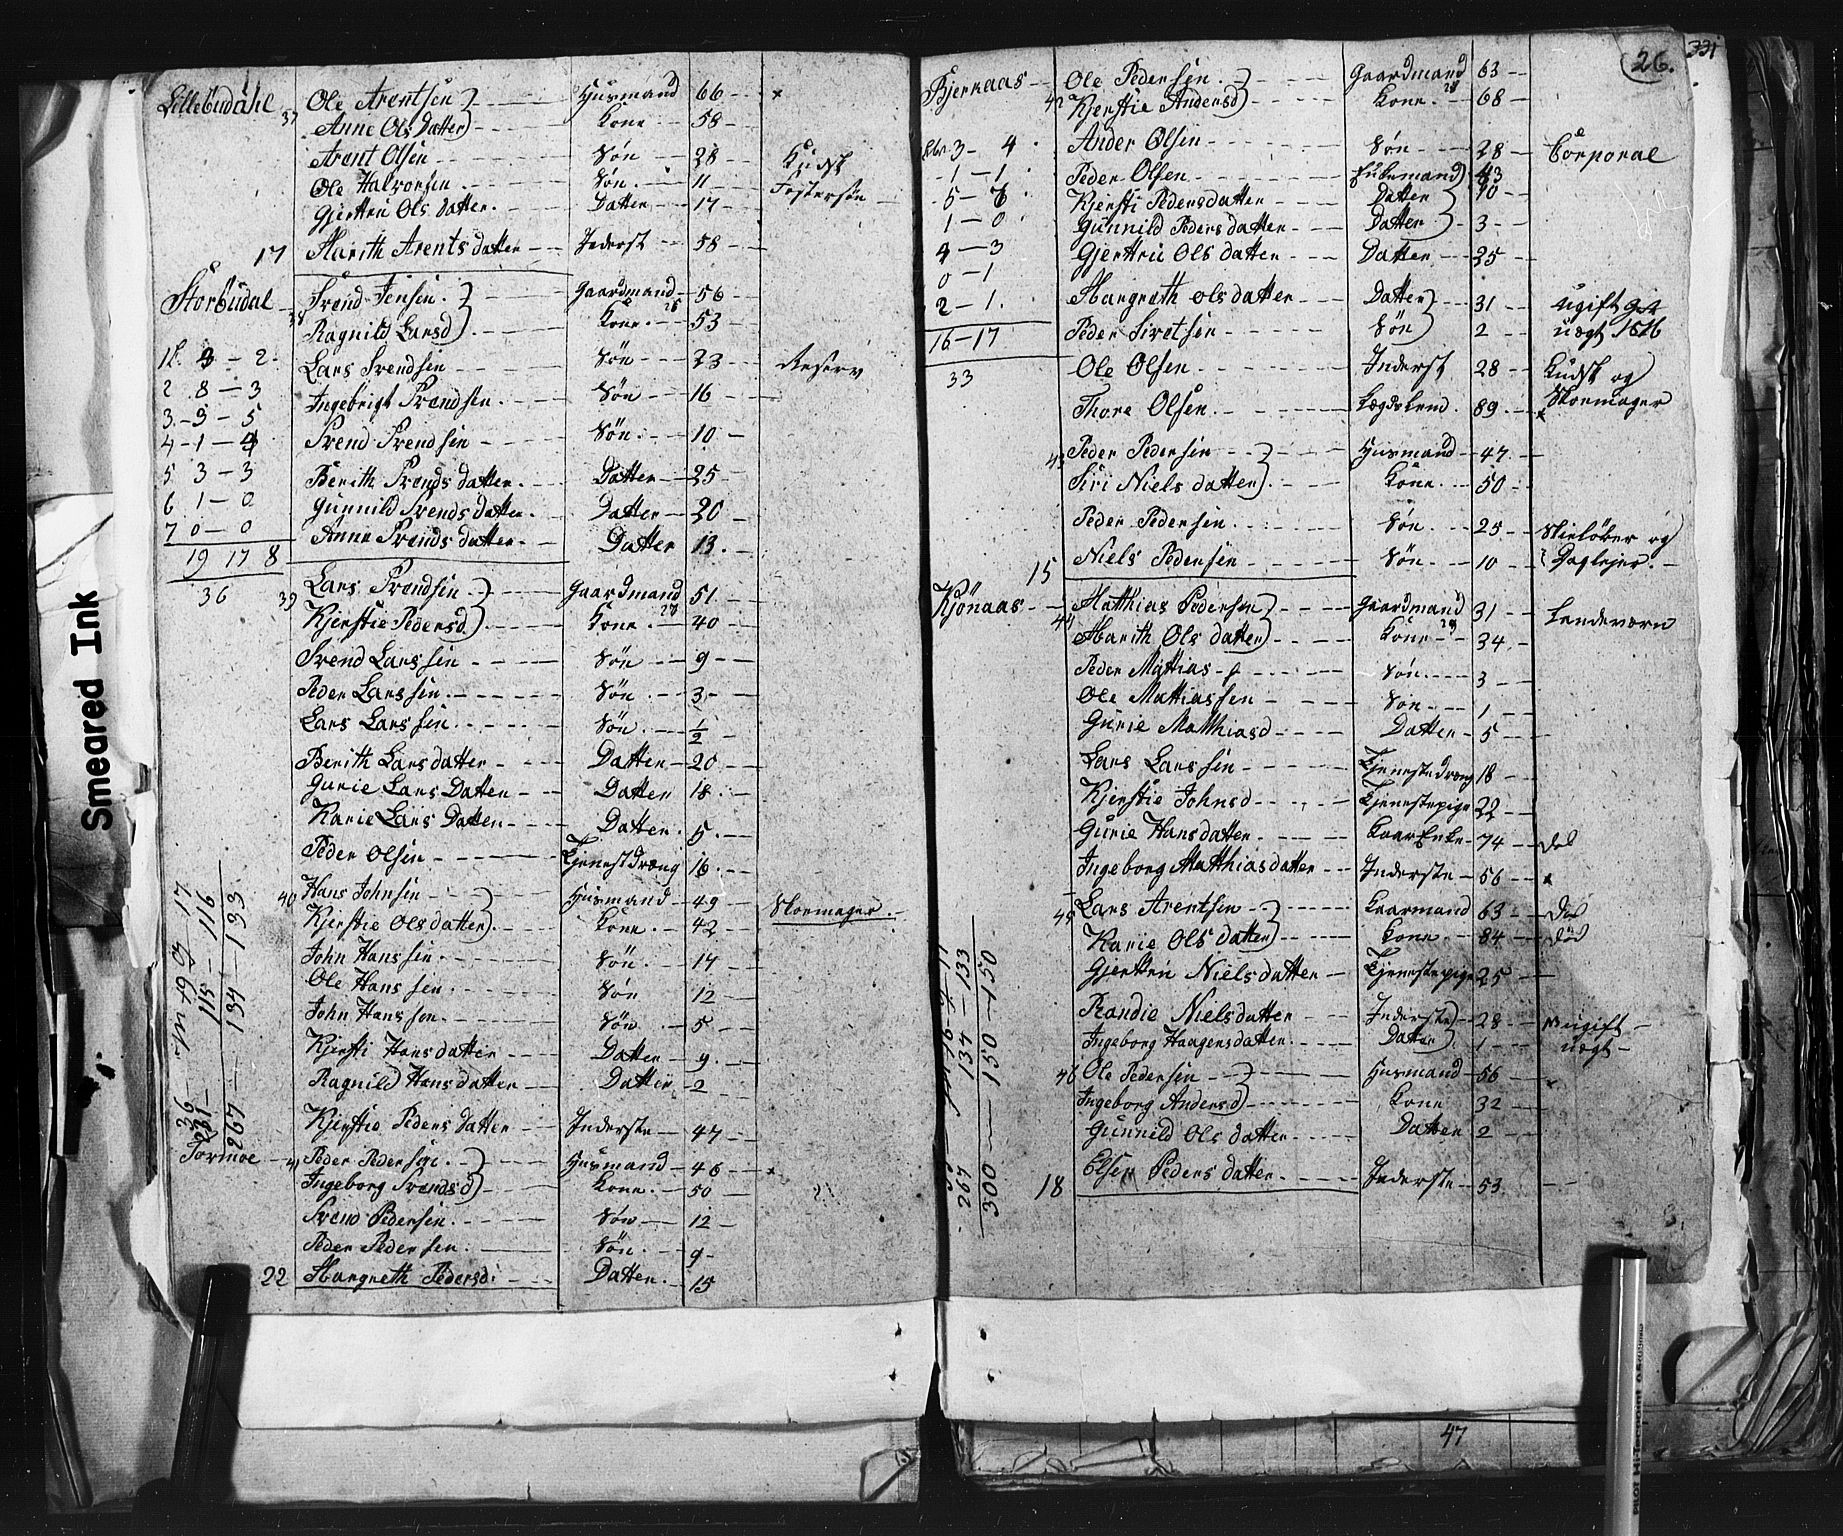 Lillebudahl 37 Ole Arentsen Husmand 66
Anne Ols Datter Kone 58
Arent Olsen Søn 28 Kudsk
Ole Halvorsen Søn 11 Fostersøn
Gjertru Ols datter Datter 17
17 Marith Arents datter Inderst 58
Storbudal Svend Jensen Gaardmand 56
Ragnild Larsd Kone 53
1 9 - 2 Lars Svendsen Søn 23 Reserv
2 8 - 3 Ingebrigt Svendsen Søn 16
3 - 5 - 5
4 - 1 - 4 Svend Svendsen Søn 10
5 3 - 3 Berith Svends datter Datter 25
6 1 - 0 Gunnild Svends datter Datter 20
7 0 - 0 Anne Svends datter Datter 13
19 17 8
36 39 Lars Svendsen Gaardmand 51
Kjerstie Pedersd Kone 40
Svend Larssen Søn 9
Peder Larssen Søn 3
Lars Larssen Søn 1/2
Berith Larsdatter Datter 20
Gurie Lars Datter Datter 18
Karie Lars Datter Datter 5
Peder Olsen Tjenestdræng 16
40 Hans Johnsen Husmand 49 Skomager
Kjerstie Olsdatter Kone 42
John Hanssen Søn 17
Ole Hanssen Søn 12
John Hanssøn Søn 5
Kjersti Hansdatter Datter 9
Ragnild Hansdatter Datter 2
Kjerstie Peders Datter Inderste 47
Tormoe 41 Peder Pedersen Husmand 46
Ingeborg Svendsd Kone 50
Svend Pedersen Søn 12
Peder Pedersen Søn 9
22 Margreth Pedersd Datter 15
19 17
115 - 116
134 - 133
36
231
267
Smeared Ink
26. 331
Bjernaas Ole Pedersen Gaardmand 63
42 Kjerstie Andersd Kone 68
3 - 4 Ander Olsen Søn 28 Corporal
1 - 1 Peder Olsen Enkemand 43
5 - 7 Kjersti Pedersdatter Datter 10
1 - 0 Gunnild Peders datter Datter 3
4 - 3 Gjertru Ols datter Datter 25
0 - 1
2 - 1 Margreth olsdatter Datter 31 ugift
16 - 17 Peder Sivetsen Søn 2 uægt 1816
33 Ole Olsen Inderst 28 Kudsk og
Thore Olsen Lægdslem 89 Skomager
43 Peder Pedersen Husmand 47
Siri Niels datter Kone 50
Peder Pedersen Søn 25 Skieløber og
15 Niels Pedersen Søn 10 Daglejer
Kjønaas 44 Matthias Pedersen Gaardmand 31 Landeværn
Marith Ols datter Kone 34
Peder Mattias Søn 3
Ole Mattiassen Søn 1
Gurie Matthiasd Datter 5
Lars Larssen Tjenestedreng 18
Kjerstie Johnsd Tjenestepige 22
Gurie Hansdatter KaarEnke 74 Død
Ingeborg Matthiasdatter Inderste 56
45 Lars Arentsen Kaarmand 63 Død
Karie Ols datter Kone 84 Død
Gjertru Niels datter Tjenestepige 25
Randie Nielsdatter Inderste 28 ugift
Ingeborg Haagensdatter Datter 1 uægt
46 Ole Pedersen Husmand 56
Ingeborg Andersd Kone 32
Gunnild Ols datter Datter 2
18 Elsen Peders datter Inderste 53
16 - 17
134 - 133
150 - 150
267
300
47